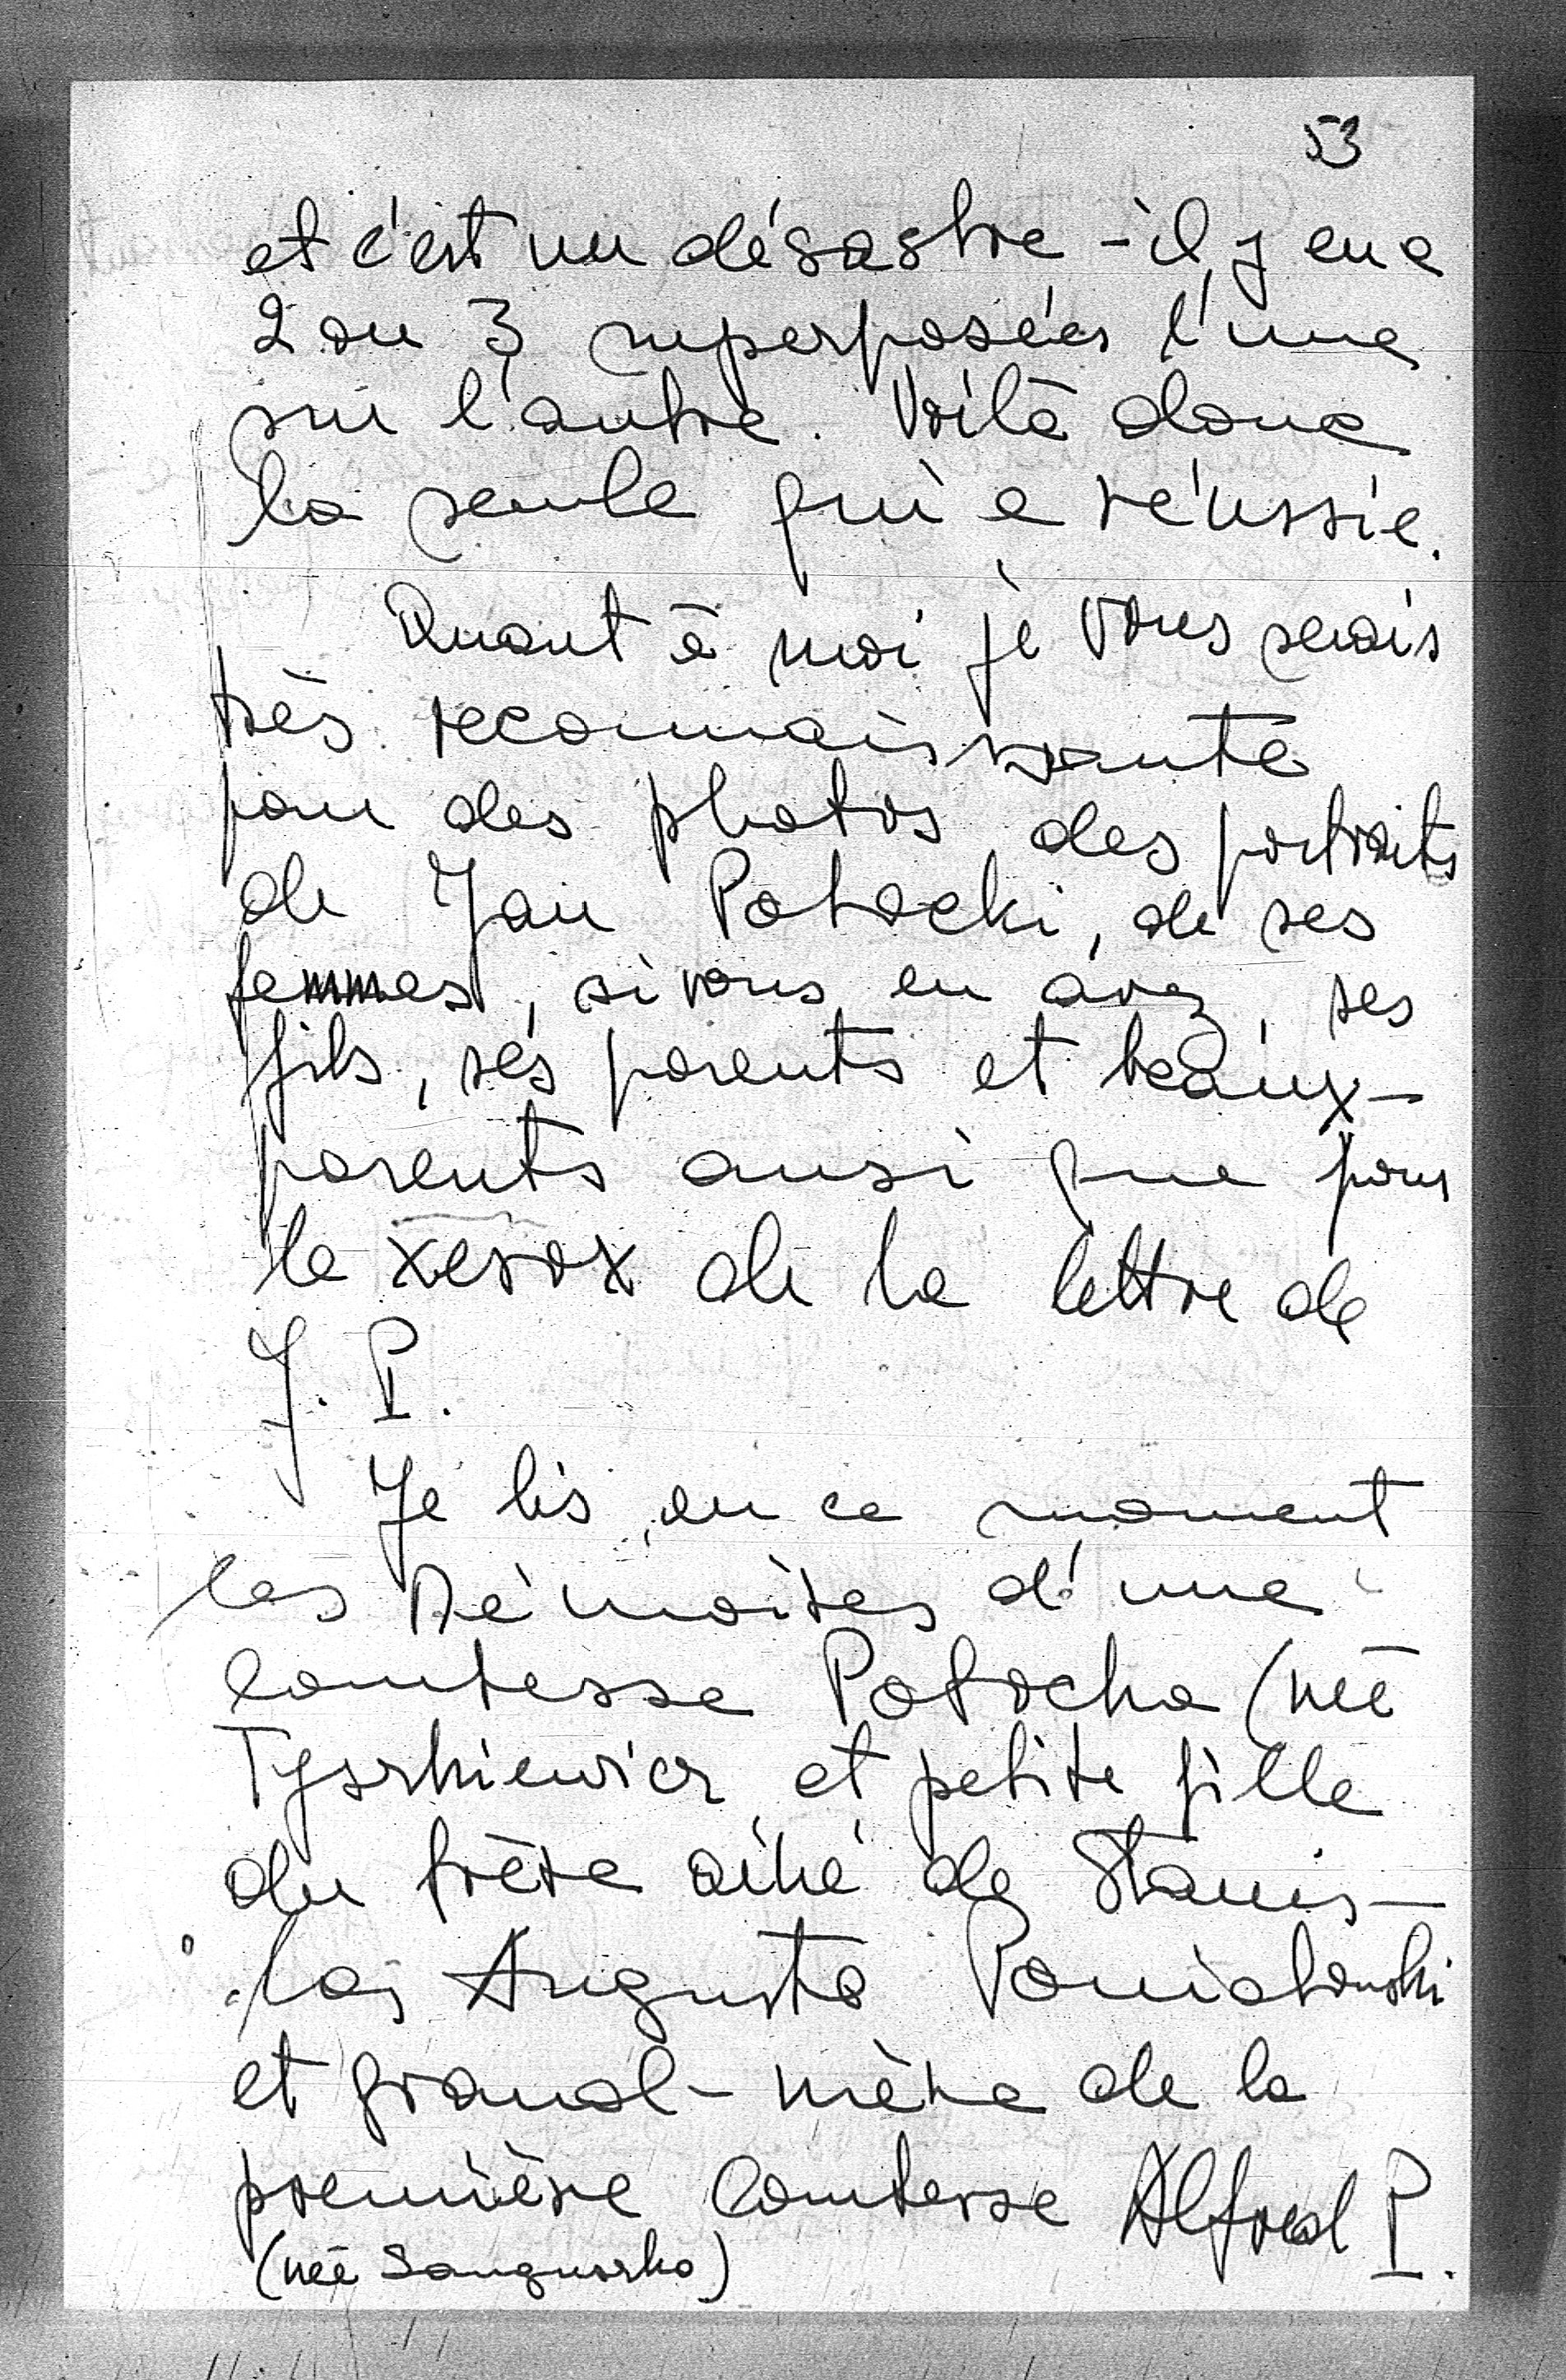 53
et c'est un désastre - il y en a
2 ou 3 superposées l'une
sur l'autre. Voilà donc
la seule qui a réussie.
Quant à moi je Vous serais
très reconnaissante
pour des photos des portraits
de Jan Potocki, de ses
femmes, si vous en avez, ses
fils, ses parents et beaux-
parents ausi que pour
le xerox de la lettre de
J. P.
Je lis en ce moment
les Mémoires d'une
comtesse Potocka (née
Tyszkiewicz et petite fille
du frère aîné de Stanis-
las Auguste Poniatowski
et grand-mère de la
première Comtesse Alfred P.
(née Sanguszko)